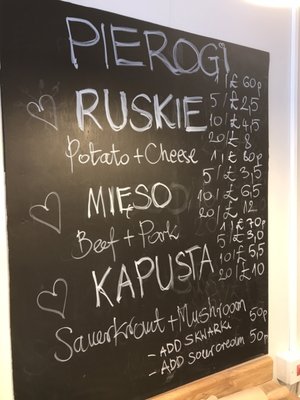 PIEROGI
1 / £ 60p
RUSKIE 5 / £ 2,5
10 / £ 4,5
Potato + Cheese 20 / £ 8
1 / £ 80p
5 / £ 3,5
MIĘSO 10 / £ 6,5
20 / £ 12
Beef + Pork 1 / £ 70p
5 / £ 3,0
KAPUSTA 10 / £ 5,5
20 / £ 10
Sauerkraut + Mushroom
- ADD SKWARKI 50p
- ADD Sourcream 50p